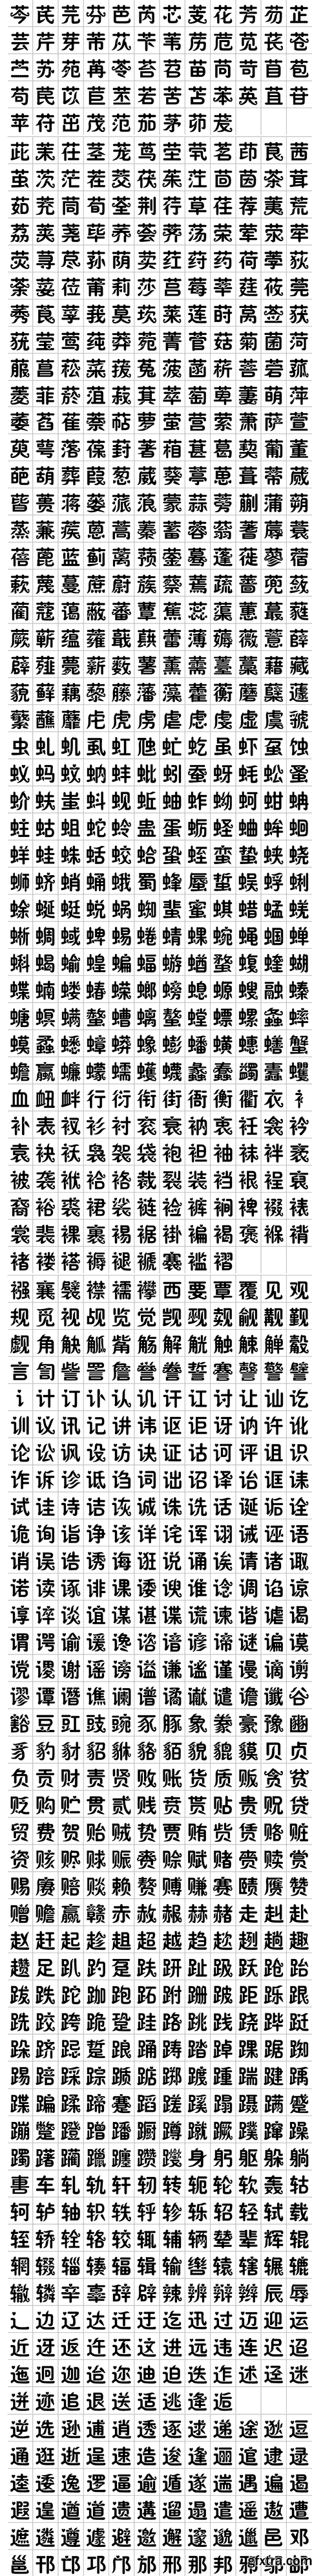 芩芪芫芬芭芮芯芰花芳芴芷
芸芹芽芾苁苄苇苈苊苋苌苍
苎苏苑苒苓苔苕苗苘苛苜苞
苟苠苡苣苤若苦苫苯英苴苷
苹苻茁茂范茄茅茆茇
此茉茌茎茏茑茔茕茗茚茛茜
茧茨茫茬茭茯茱茳茴茵茶茸
茹茺茼荀荃荆荇草荏荐荑荒
荔荚荛荜荞荟荠荡荣荤荥荦
荧荨荩荪荫荬荭药荷荸荻
荼莅莆莉莎莒莓莘莛莜莞
莠莨莩莪莫莰莱莲莳莴莶获
莸莹莺莼莽菀菁菅菇菊菌菏
菔菖菘菜菝菟菠菡菥菩菪菰
菱菲菸菹菽萁萃萄萆萋萌萍
萎萏萑萘萜萝萤营萦萧萨萱
萸萼落葆葑著葙葚葛葜葡董
葩葫葬葭葱葳葵葶葸葺蒂蒇
蒈蒉蒋蒌蒎蒗蒙蒜蒡蒯蒲蒴
蒸蒹蒺蒽蒿蓁蓄蓉蓊蓍蓐蓑
蓓蓖蓝蓟蓠蓣蓥蓦蓬蓰蓼蓿
蔌蔑蔓蔗蔚蔟蔡蔫蔬蔷蔸蔹
蔺蔻蔼蔽蕃蕈蕉蕊蕖蕙蕞蕤
蕨蕲蕴蕹蕺蕻蕾薄薅薇薏薛
薜薤薨薪薮薯薰薷薹藁藉藏
藐藓藕藜藤藩藻藿蘅蘑蘖蘧
蘩蘸蘼虍虎虏虐虑虔虚虞虢
虫虬虮虱虹虺虻虼虽虾虿蚀
蚁蚂蚊蚋蚌蚍蚓蚕蚜蚝蚣蚤
蚧蚨蚩蚪蚬蚯蚰蚱蚴蚵蚶蚺
蛀蛄蛆蛇蛉蛊蛋蛎蛏蛐蛑蛔
蛘蛙蛛蛞蛟蛤蛩蛭蛮蛰蛱蛲
蛳蛴蛸蛹蛾蜀蜂蜃蜇蜈蜉蜊
蜍蜒蜓蜕蜗蜘蜚蜜蜞蜡蜢蜣
蜥蜩蜮蜱蜴蜷蜻蜾蜿蝇蝈蝉
蝌蝎蝓蝗蝙蝠蝣蝤蝥蝮蝰蝴
蝶蝻蝼蝽蝾螂螃螅螈螋融螓
螗螟螨螫螬螭螯螳螵螺螽蟀
蟆蟊蟋蟑蟒蟓蟛蟠蟥蟪蟮蟹
蟾蠃蠊蠓蠕蠖蠛蠡蠢蠲蠹蠼
血衄衅行衍衔街衙衡衢衣衤
补表衩衫衬衮衰衲衷衽衾衿
袁袂袄袅袈袋袍袒袖袜袢袤
被袭袱袼裆裁裂装裆裉裎裒
裔裕裘裙裟裢裣裤裥裨裰裱
裳裴裸裹裼裾褂褊褐褒褓褙
褚褛褡褥褪褫褰褴褶
襁襄襞襟襦襻西要覃覆见观
规觅视觇览觉觊觋觌觎觏觐
觑角觖觚觜觞解觥触觫觯觳
言訇訾詈詹誉誊誓謇謦警譬
讠计订讣认讥讦讧讨让讪讫
训议讯记讲讳讴讵讶讷许讹
论讼讽设访诀证诂诃评诅识
诈诉诊诋诌词诎诏译诒诓诔
试诖诗诘诙诚诛诜话诞诟诠
诡询诣诤该详诧诨诩诫诬语
诮误诰诱诲诳说诵诶请诸诹
诺读诼诽课诿谀谁谂调谄谅
谆谇谈谊谋谌谍谎谏谐谑谒
谓谔谕谖谗谘谙谚谛谜谝谟
谠谡谢谣谤谥谦谧谨谩谪谫
谬谭谮谯谰谱谲谳谴谵谶谷
豁豆豇豉豌豕豚象豢豪豫豳
豸豹豺貂貅貉貊貌貔貘贝贞
负贡财责贤败账货质贩贪贫
贬购贮贯贰贱贲贳贴贵贶贷
贸费贺贻贼贽贾贿赀赁赂赃
资赅赆赇赈赉赊赋赌赍赎赏
赐赓赔赕赖赘赙赚赛赜赝赞
赠赡赢赣赤赦赧赫赭走赳赴
赵赶起趁趄超越趋趑趔趟趣
趱足趴趵趸趺趼趾趿跃跄跆
跋跌跎跏跑跖跗跚跛距跞跟
跣跤跨跪跫跬路跳践跷跸跹
跺跻跽踅踉踊踌踏踔踝踞踟
踢踣踩踪踬踮踯踱踵踹踺踽
蹀蹁蹂蹄蹇蹈蹉蹊蹋蹑蹒蹙
蹦蹩蹬蹭蹯蹰蹲蹴蹶蹼蹿躁
躅躇躏躐躔躜躞身躬躯躲躺
軎车轧轨轩轫转轭轮软轰轱
轲轳轴轵轶轷轸轹轺轻轼载
轾轿辁辂较辄辅辆辇辈辉辊
辋辍辎辏辐辑输辔辕辖辗辘
辙辚辛辜辞辟辣辨辩辫辰辱
辶边辽达迁迂迄迅过迈迎运
近迓返迕还这进远违连迟迢
迤迥迦迨迩迪迫迭迮述迳迷
迸迹追退送适逃逄逅
逆选逊逋逍透逐逑递途逖逗
通逛逝逞速造逡逢逦逭逮逯
逵逶逸逻逼逾遁遂遄遇遍遏
遐遑遒道遗遘遛遢遣遥遨遭
遮遴遵遽避邀邂邃邈邋邑邓
邕邗邙邛邝邡邢那邦邪邬
gfxtra.com